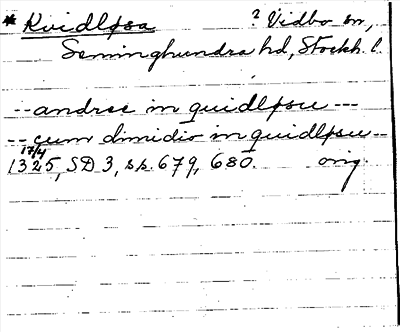 * Kvidlösa ? Vidbo sn,
Seminghundra hd, Stockh. l.
-- andree in quidløsu ---
-- cum dimidio in quidløsu --
17/4
1325, SD 3, ss. 679, 680. orig.